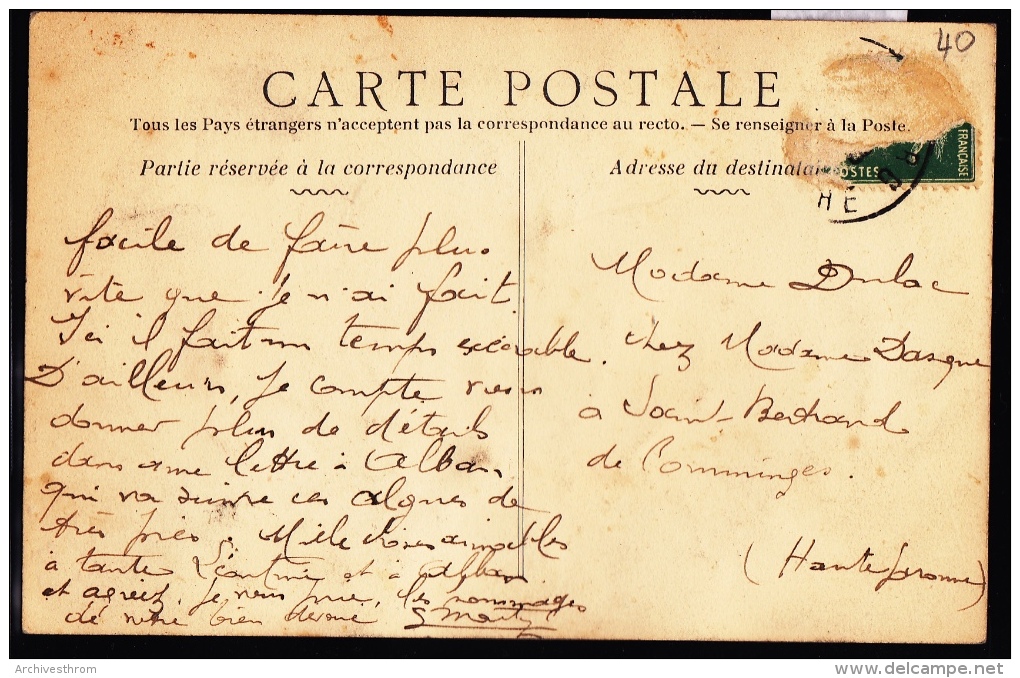 40
CARTE POSTALE
Tous les Pays étrangers n'acceptent pas la correspondance au recto. — Se renseigner à la Poste.
Partie réservée à la correspondance
Adresse du destinatai
FRANÇAISE
OSTES
HE
facile de faire plus
vite que je n'ai fait.
Ici il fait un temps exécrable.
D'ailleurs, je compte vous
donner plus de détails
dans une lettre à Alban
qui va suivre ces lignes de
très près. Mille choses aimables
à tante et à Alban
et agréez, je vous prie, les hommages
de votre bien dévoué
Madame Dulac
chez Madame
à Saint Bertrand
de Comminges.
(Haute Garonne)
Archivesthrom
http://www.delcampe.net